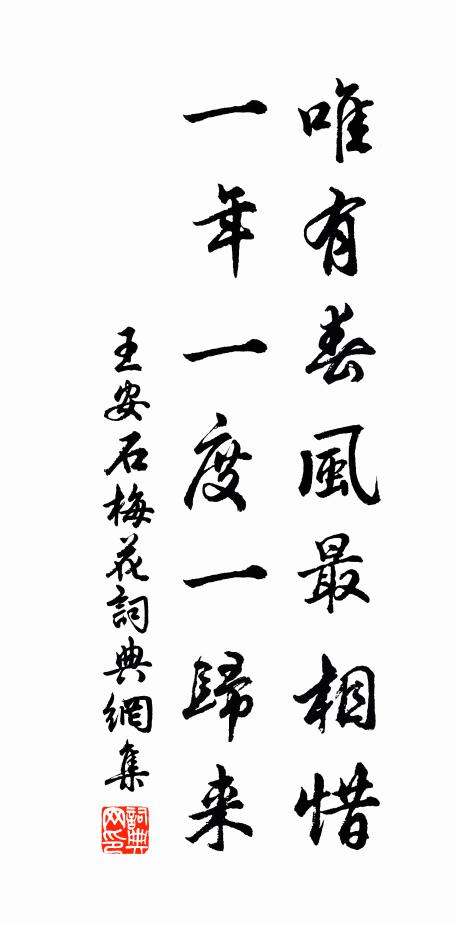 唯有春風最相惜
一年一度一歸来
王安石梅花詞典網集
詞典网印